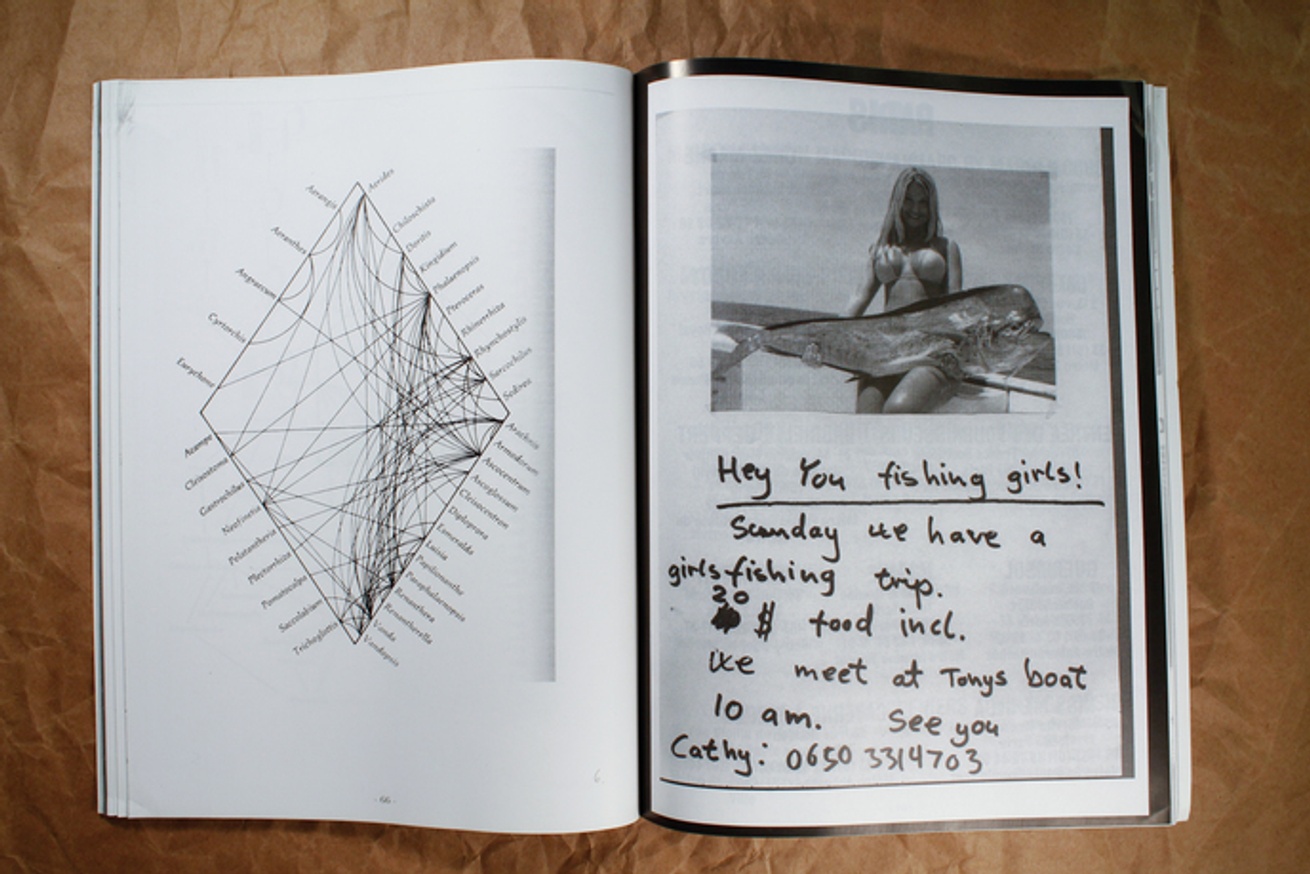 Aerides
Aerangis
Chiloschista
Aeranthes
Doritis
Kingidium
Angraecum
Phalaenopsis
Pteroceras
Cyrtorchis
Rhinerrhiza
Rhynchostylis
Eurychone
Sarcochilus
Sedirea
Acampe
Arachnis
Cleisostoma
Armodorum
Gastrochilus
Ascocentrum
Neofinetia
Ascoglossum
Pelatantheria
Cleisocentrum
Plectorrhiza
Diploprora
Pomatocalpa
Esmeralda
Saccolabium
Luisia
Trichoglottis
Papilionanthe
Paraphalaenopsis
Renanthera
Renantherella
Vanda
Vandopsis
- 66 -
Hey You fishing girls!
Sunday we have a
girls fishing trip.
20
$ food incl.
We meet at Tonys boat
10 am. See you
Cathy: 0650 3314703